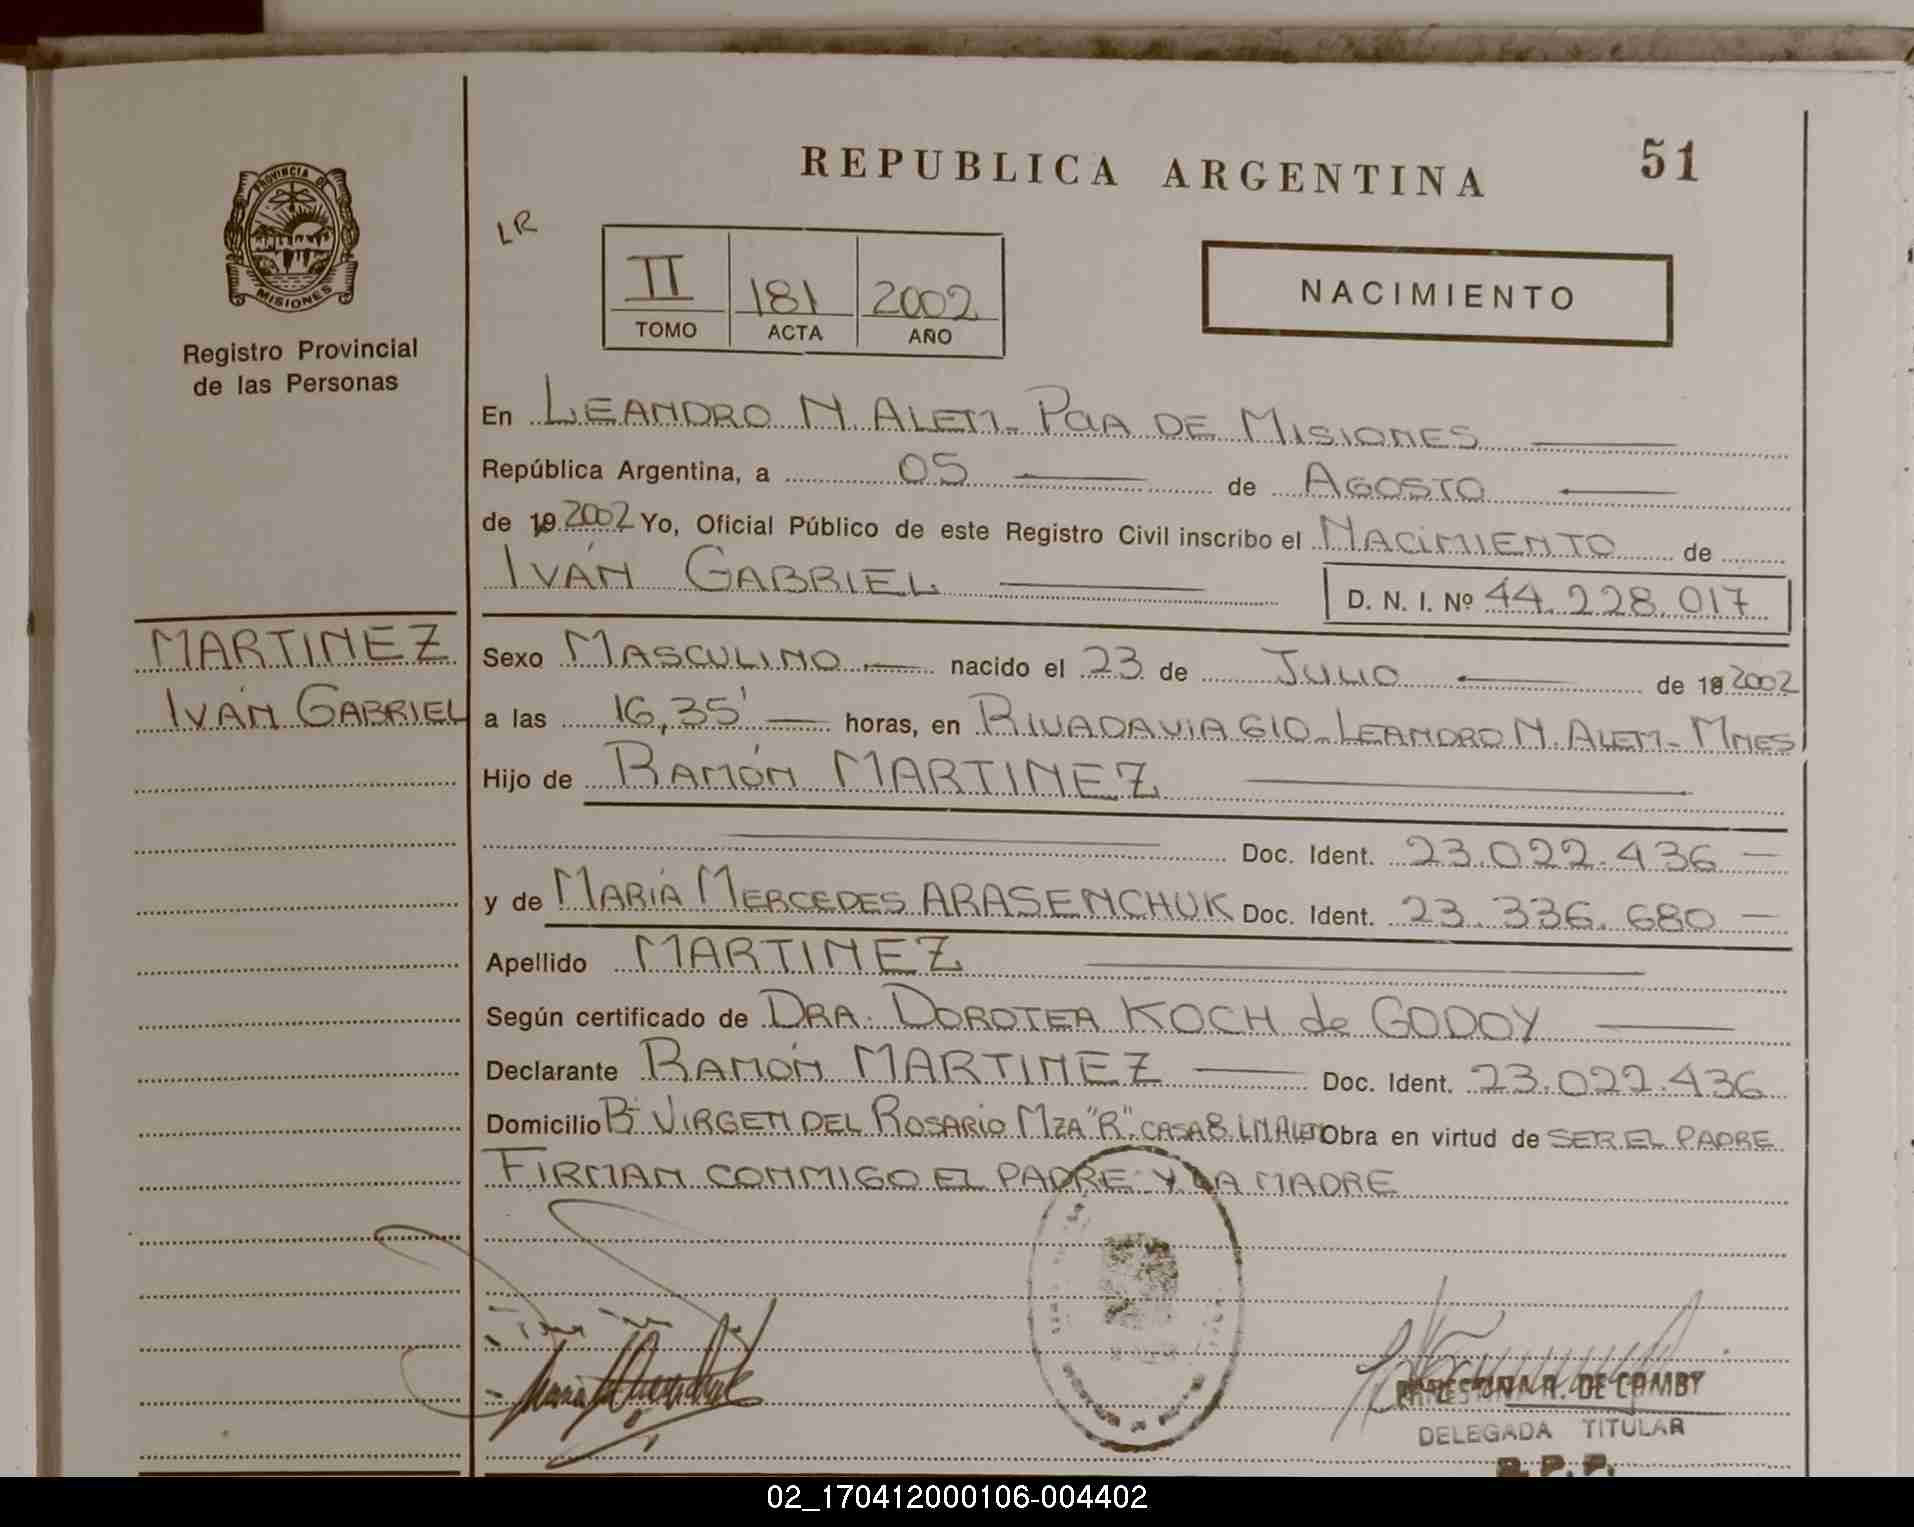 REPUBLICA ARGENTINA
51
PROVINCIA DE
MISIONES
Registro Provincial
de las Personas
LR
II 181 2002
TOMO ACTA AÑO
NACIMIENTO
En LEANDRO N. ALEM - PCIA DE MISIONES
República Argentina, a 05 de AGOSTO
de 19 2002 Yo, Oficial Público de este Registro Civil inscribo el NACIMIENTO de
IVÁN GABRIEL
D. N. I. Nº 44.228.017
MARTINEZ
IVÁN GABRIEL
Sexo MASCULINO nacido el 23 de JULIO de 19 2002
a las 16,35' horas, en RIVADAVIA 610 - LEANDRO N. ALEM - MNES
Hijo de RAMÓN MARTINEZ
Doc. Ident. 23.022.436
y de MARÍA MERCEDES ARASENCHUK Doc. Ident. 23.336.680
Apellido MARTINEZ
Según certificado de DRA. DOROTEA KOCH de GODOY
Declarante RAMÓN MARTINEZ Doc. Ident. 23.022.436
Domicilio Bº VIRGEN DEL ROSARIO MZA "R" CASA 8 LN ALEM Obra en virtud de SER EL PADRE
FIRMAN CONMIGO EL PADRE Y LA MADRE
DE COMBY
DELEGADA TITULAR
02_170412000106-004402